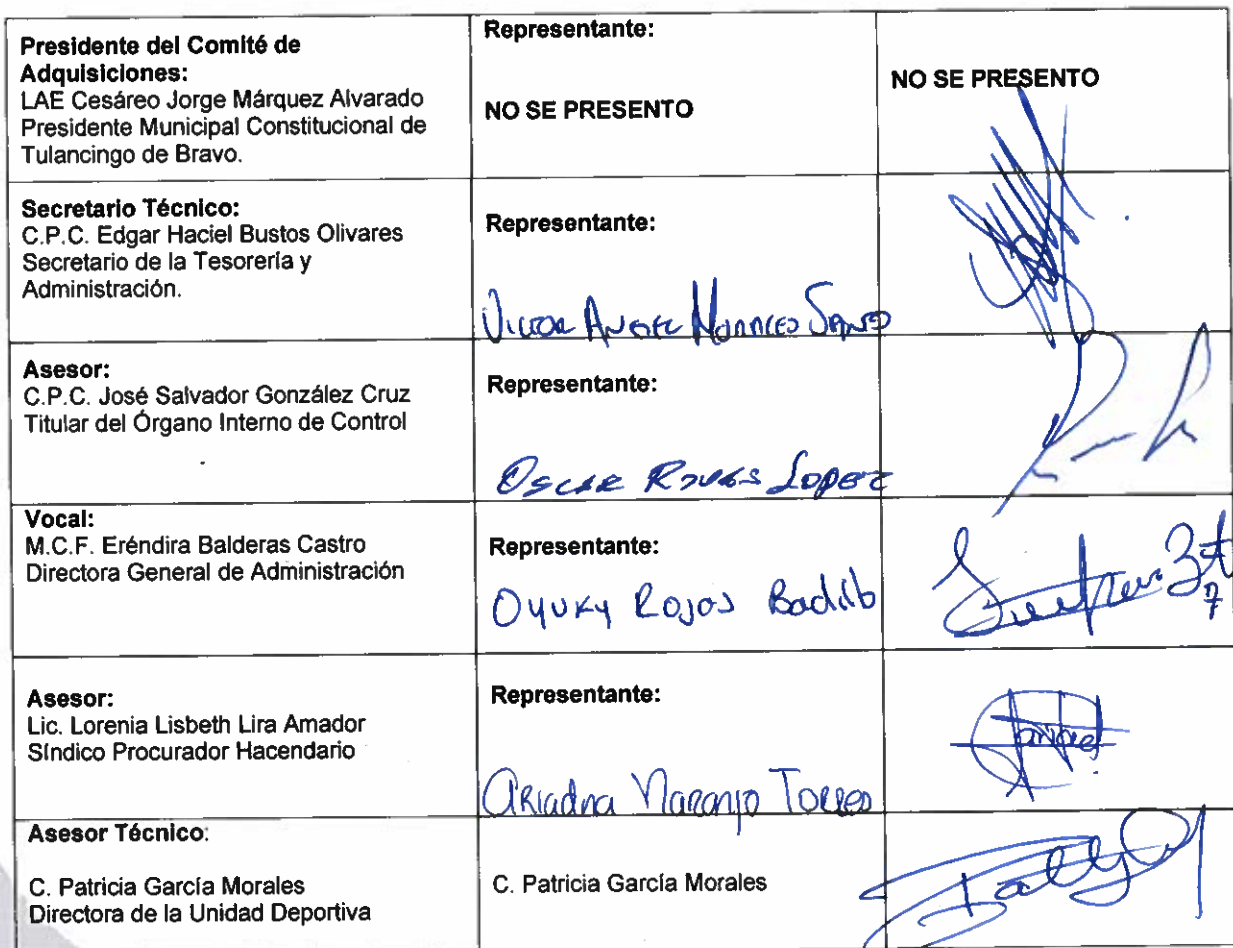 Presidente del Comité de
Adquisiciones:
LAE Cesáreo Jorge Márquez Alvarado
Presidente Municipal Constitucional de
Tulancingo de Bravo.
Representante:
NO SE PRESENTO
NO SE PRESENTO
Secretario Técnico:
C.P.C. Edgar Haciel Bustos Olivares
Secretario de la Tesorería y
Administración.
Representante:
Victor Angel Morales
Asesor:
C.P.C. José Salvador González Cruz
Titular del Órgano Interno de Control
Representante:
Oscar Lopez
Vocal:
M.C.F. Eréndira Balderas Castro
Directora General de Administración
Representante:
Oyuky Rojas Badillo
Asesor:
Lic. Lorenia Lisbeth Lira Amador
Síndico Procurador Hacendario
Representante:
Ariadna Naranjo Torres
Asesor Técnico:
C. Patricia García Morales
Directora de la Unidad Deportiva
C. Patricia García Morales